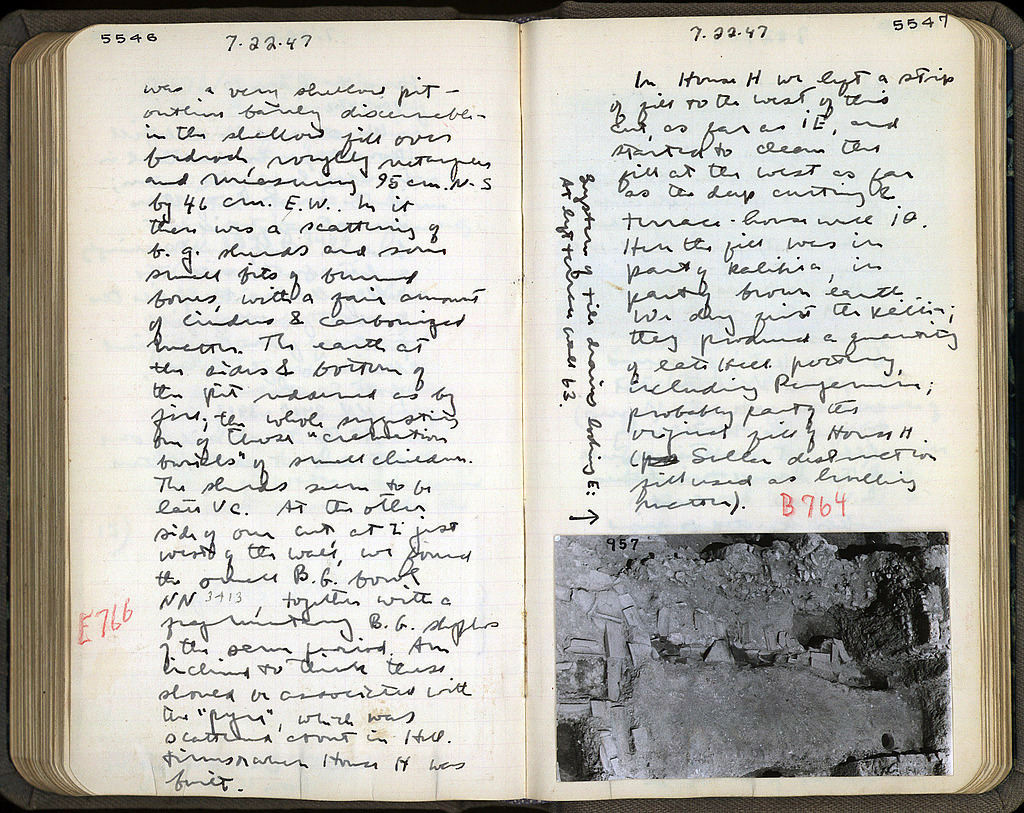 5546
7.22.47
was a very shallow pit -
outline barely discernable -
in the shallow fill over
bedrock, roughly rectangular
and measuring 95 cm. N-S
by 46 cm. E.W.. In it
there was a scattering of
b. g. sherds and some
small bits of burned
bones, with a fair amount
of cinders & carbonized
matter. The earth at
the sides & bottom of
the pit reddened as by
fire; the whole suggesting
one of those "cremation
burials" of small children.
The sherds seem to be
late V C. At the other
side of our cut, at just
west of the wall, we found
the small B.G. bowl
NN 3413, together with a
fragmentary B.G. skyphos
E766
of the same period. Am
inclined to think these
should be associated with
the "pyre", which was
scattered about in Hell.
times when House H was
built.
5547
7.22.47
In House H we left a strip
of fill to the west of this
cut, as far as IE, and
started to clean the
fill at the west as far
as the deep cutting &
terrace-house wall
Here the fill was in
part of kalibia, in
part of brown earth.
We dug first the
they produced a quantity
of late Hell. pottery,
including Pergamene;
probably part of the
original fill of House H.
(Sullan destruction
fill used as levelling
matter).
B764
System of tile drains looking E: ↑
At left terrace wall
957